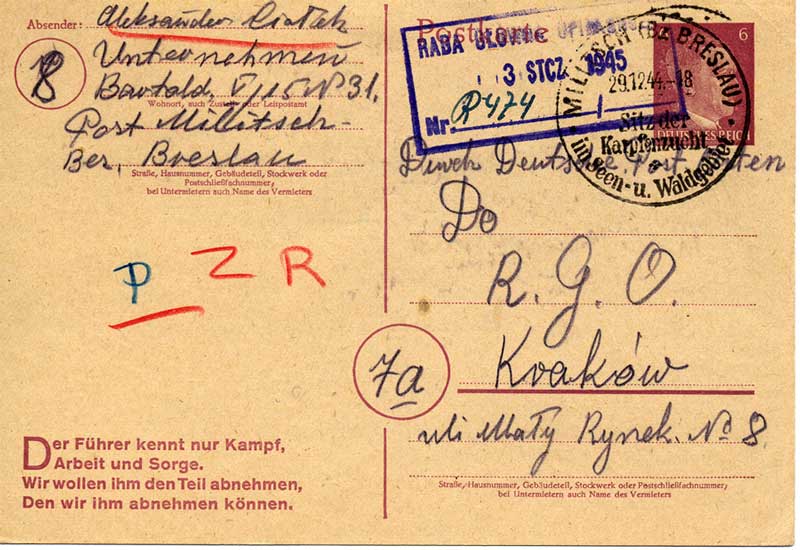 Absender: Aleksander
8
Unternehmen
Bartold. V/15 Nº 31.
Wohnort, auch Zustell- oder Leitpostamt
Post Militsch-
Ber. Breslau
Straße, Hausnummer, Gebäudeteil, Stockwerk oder
Postschließfachnummer;
bei Untermietern auch Name des Vermieters
P Z R
Der Führer kennt nur Kampf,
Arbeit und Sorge.
Wir wollen ihm den Teil abnehmen,
Den wir ihm abnehmen können.
Postkarte
6
DEUTSCHES REICH
RADA GŁÓWNA OPIEKUŃCZA
3 STCZ. 1945
Nr. P 474
MILITSCH (BZ BRESLAU)
29.12.44.-18
Sitz der
Karpfenzucht
im Seen- u. Waldgebiet
Durch Deutsche Post Osten
Do
R. G. O.
7a
Kraków
uli Mały Rynek. Nº 8.
Straße, Hausnummer, Gebäudeteil, Stockwerk oder Postschließfachnummer;
bei Untermietern auch Name des Vermieters